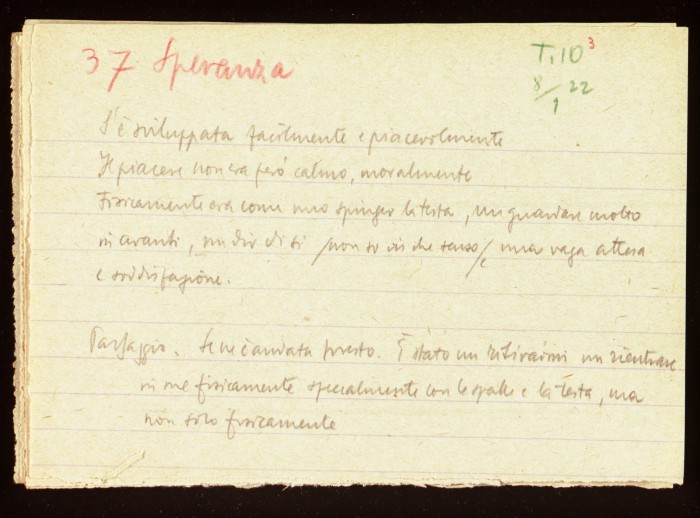 37 Speranza
T. 10³
8/1 22
S'è sviluppata facilmente e piacevolmente
Il piacere non era però calmo, moralmente
Fisicamente era come uno spinger la testa, un guardare molto
in avanti, un dir di sì /non so in che senso/, una vaga attesa
e soddisfazione.
Passaggio. Se ne è andata presto. È stato un ritirarmi un rientrare
in me fisicamente specialmente con le spalle e la testa, ma
non solo fisicamente